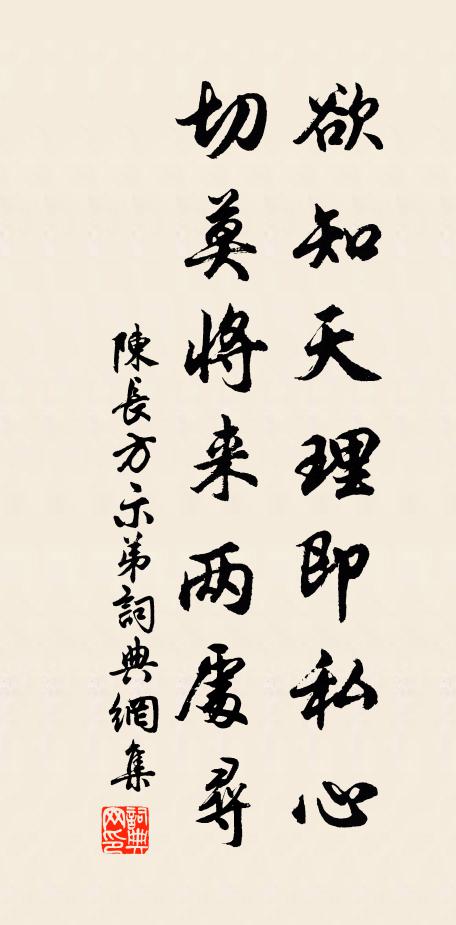 欲知天理即私心
切莫将来两處尋
陳長方示弟詞典網集
詞典网印